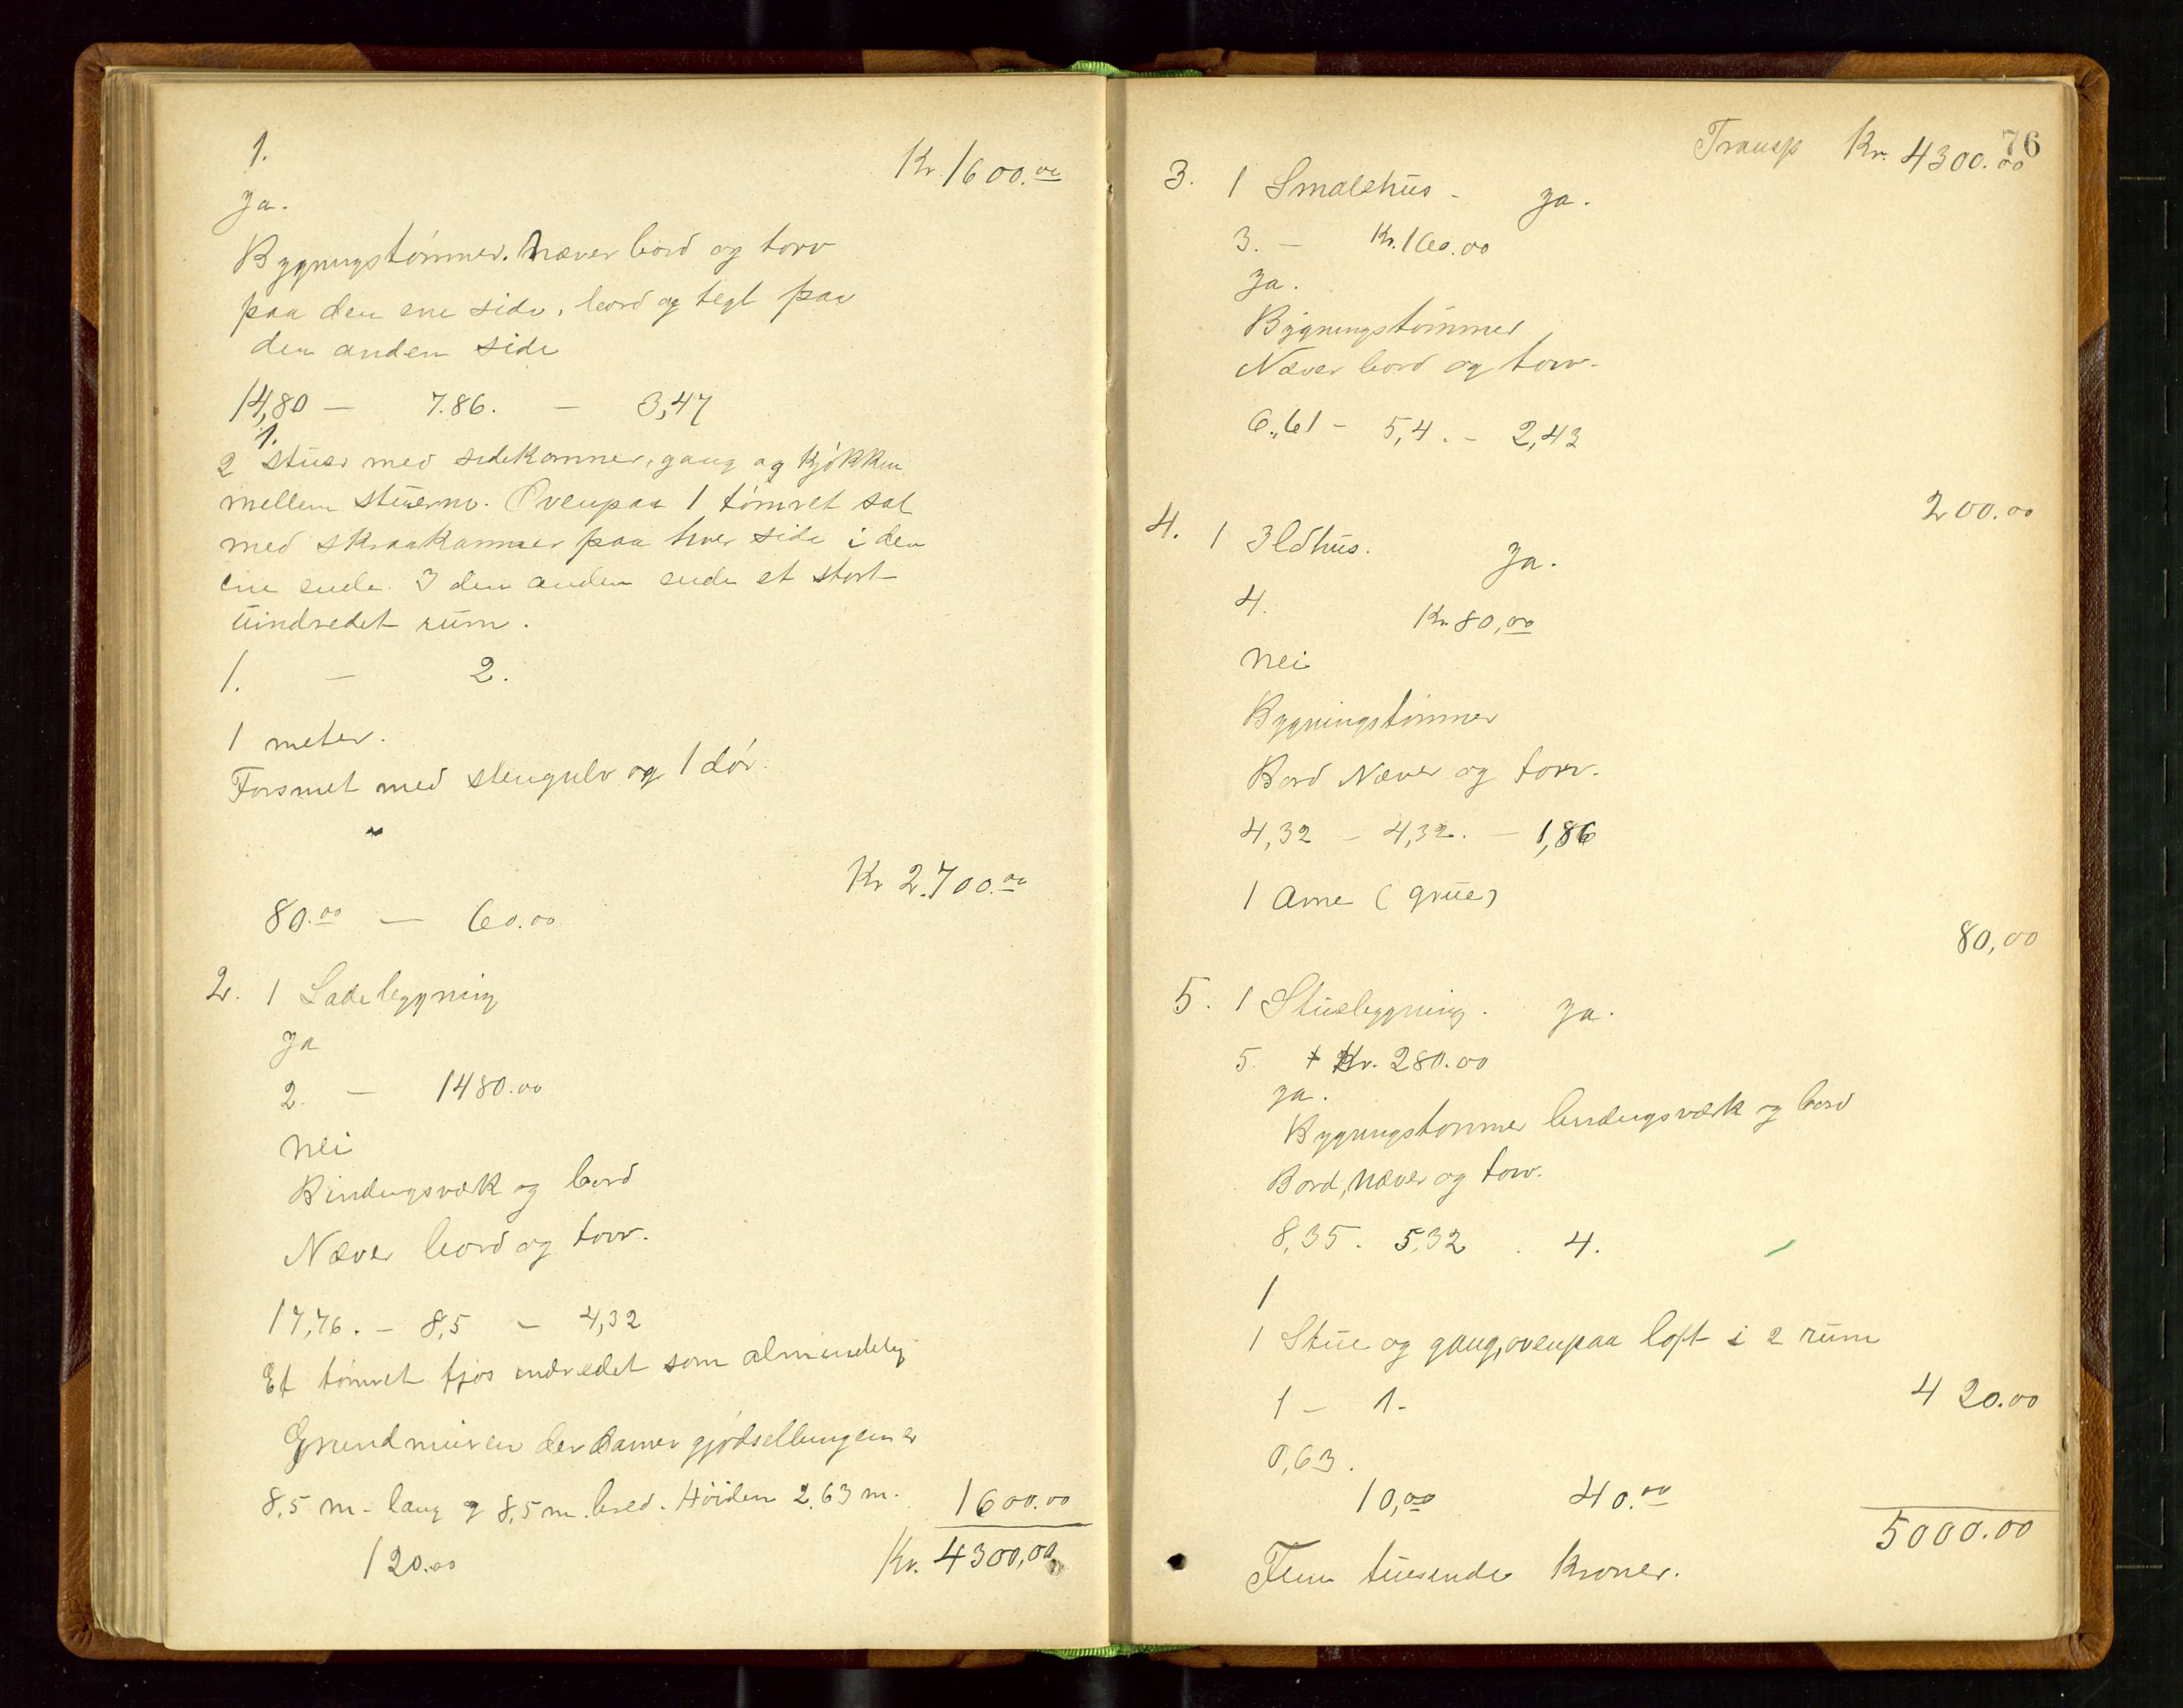 1.
Kr. 1600.00
Ja.
Bygningstømmer. Næver bord og torv
paa den ene side, bord og tegl paa
den anden side
14,80 — 7.86. — 3,47
1.
2 stuer med sidekammer, gang og kjøkken
mellem stuerne. Ovenpaa 1 tømret sal
med skraakammer paa hver side i den
ene ende. I den anden ende et stort
uindredet rum.
1. — 2.
1 meter.
med stengulv og 1 dør.
"
Kr 2.700.00
80.00 — 60.00
2. 1 Ladebygning
Ja
2. — 1480.00
Nei
Bindingsværk og bord
Næver bord og torv.
17,76. — 8,5 — 4,32
Et tømret fjøs indredet som almindelig
Grundmuren der danner er
8,5 m. lang og 8,5 m. bred. Høiden 2,63 m.
1600.00
120.00
Kr. 4300,00
76
Transp Kr. 4300.00
3. 1 Smalehus - Ja.
3. — Kr. 160.00
Ja.
Bygningstømmer
Næver bord og torv.
6,61 - 5,4. - 2,43
200.00
4. 1 Ildhus. Ja.
4. Kr 80,00
Nei
Bygningstømmer
Bord Næver og torv.
4,32 - 4,32. - 1,86
1 Arne (grue)
80,00
5. 1 Stuebygning. Ja.
5. Kr. 280.00
Ja.
Bygningstømmer bindingsværk og bord
Bord, Næver og torv.
8,35. 5,32. 4.
1
1 Stue og gang, ovenpaa loft i 2 rum
1 - 1.
420.00
0,63.
10,00 40.00
5000.00
Fem tusinde kroner.